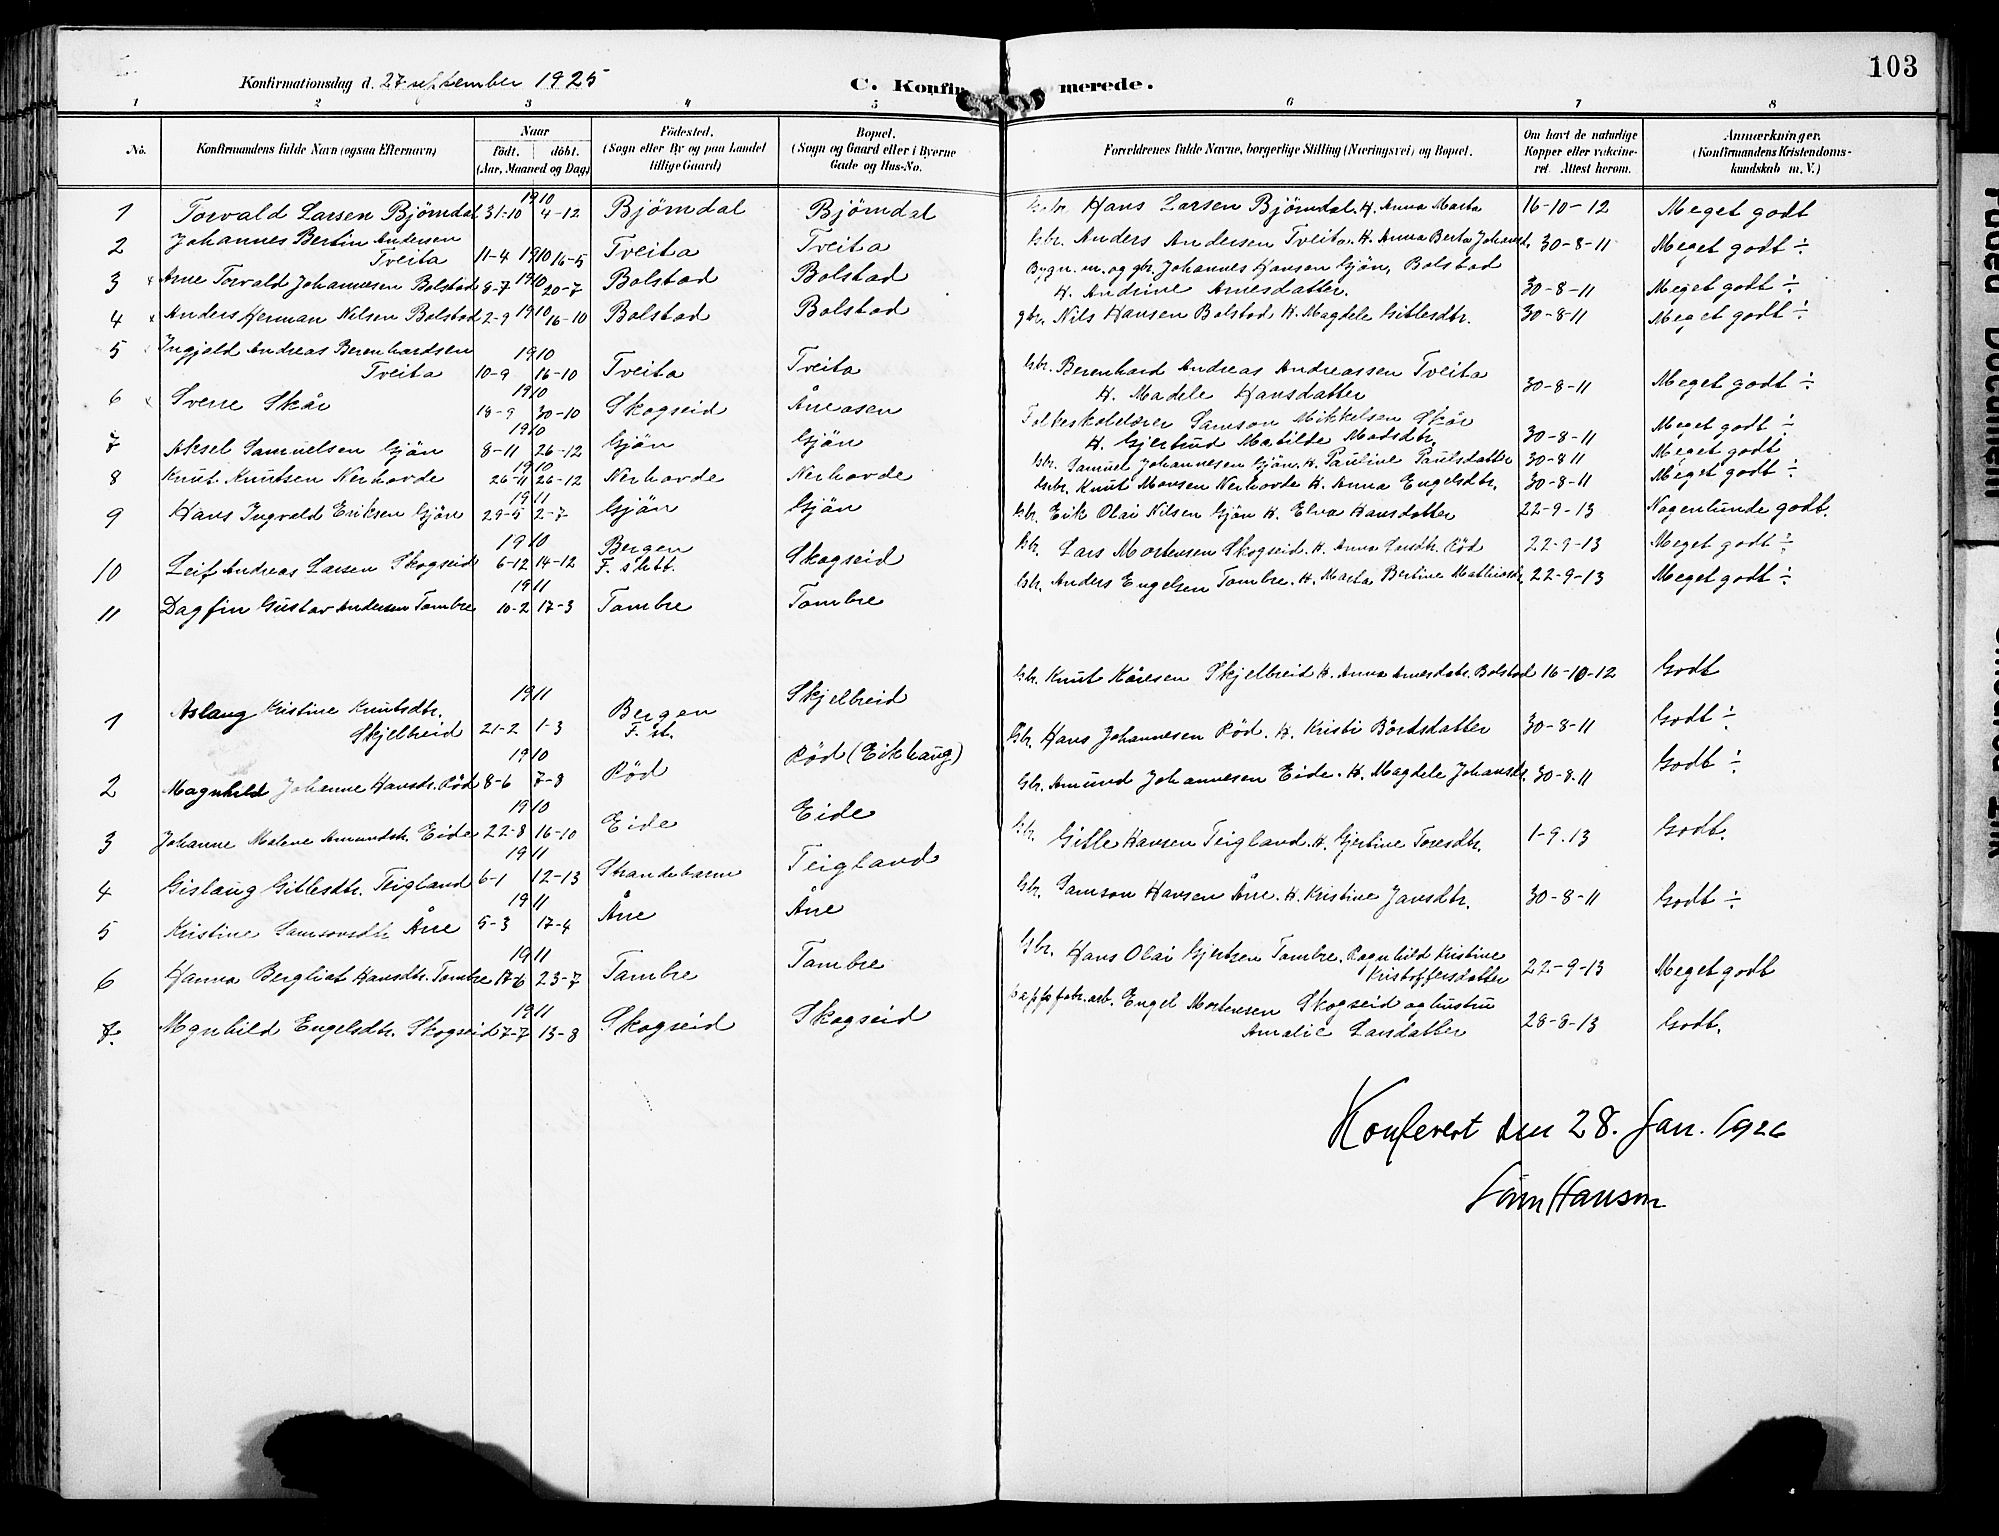 103
Konfirmationsdag d. 27 september 1925
C. Konfir merede.
1 2 3 4 5 6 7 8
No. Konfirmandens fulde Navn (ogsaa Efternavn) Naar født. døbt. (Aar, Maaned og Dag) Fødested. (Sogn eller By og paa Landet tillige Gaard) Bopæl. (Sogn og Gaard eller i Byerne Gade og Hus-No. Forældrenes fulde Navne, borgerlige Stilling (Næringsvei) og Bopæl. Om havt de naturlige Kopper eller vakcineret. Attest herom. Anmærkninger. (Konfirmandens Kristendomskundskab m. V.)
1 Torvald Larsen Björndal 1910 31-10 4-12 Björndal Björndal Gbr. Hans Larsen Björndal. H. Anna Marta 16-10-12 Meget godt
2 Johannes Bertin Andersen Tveita 11-4 1910 16-5 Tveita Tveita Gbr. Anders Andersen Tveita. H. Anna Berta Johansd. 30-8-11 Meget godt ÷
3 Arne Torvald Johannesen Bolstad 8-7 1910 20-7 Bolstad Bolstad Bygn. m. og gbr. Johannes Hansen Gjön, Bolstad H. Andrine Arnesdatter. 30-8-11 Meget godt ÷
4 Anders Herman Nilsen Bolstad 2-9 1910 16-10 Bolstad Bolstad gbr. Nils Hansen Bolstad H. Magdele Gitlesdtr. 30-8-11 Meget godt ÷
5 Ingjald Andreas Berenhardsen Tveita 1910 10-9 16-10 Tveita Tveita Gbr. Berenhard Andreas Andreassen Tveita H. Madele Hansdatter 30-8-11 Meget godt ÷
6 Sverre Skår 1910 18-9 30-10 Skogseid Åneåsen Folkeskolelærer Samson Mikkelsen Skår H. Gjertrud Matilde Madsdtr. 30-8-11 Meget godt ÷
7 Aksel Samuelsen Gjön 1910 8-11 26-12 Gjön Gjön Gbr. Samuel Johannesen Gjön. H. Pauline Paulsdatter 30-8 11 Meget godt
8 Knut Knutsen Nerhovde 1910 26-11 26-12 Nerhovde Nerhovde Gbr. Knut Monsen Nerhovde H. Anna Engelsdtr. 30-8-11 Meget godt ÷
9 Hans Ingvald Eriksen Gjön 1911 29-5 2-7 Gjön Gjön Gbr. Erik Olai Nilsen Gjön H. Elva Hansdatter 22-9-13 Nogenlunde godt.
10 Leif Andreas Larsen Skogseid 1910 6-12 14-12 Bergen F. stitt. Skogseid Gbr. Lars Mortensen Skogseid. H. Anna Larsdtr. Röd 22-9-13 Meget godt ÷
11 Dagfin Gustav Andersen Tombre 1911 10-2 17-3 Tombre Tombre Gbr. Anders Engelsen Tombre. H. Marta Bertine Mathiasdtr 22-9-13 Meget godt ÷
1 Aslaug Kristine Knutsdtr. Skjelbreid 1911 21-2 1-3 Bergen F. st. Skjelbreid Gbr. Knut Kåresen Skjelbreid H. Anna Arnesdatr. Bolstad 16-10-12 Godt
2 Magnhild Johanne Hansdr. Röd 1910 8-6 7-8 Röd Röd (Eikhaug) Gbr. Hans Johannesen Röd. H. Kristi Bårdsdatter 30-8-11 Godt ÷
3 Johanne Malene Amundstr. Eide 1910 22-8 16-10 Eide Eide Gbr. Amund Johannesen Eide. H. Magdele Johansdr. 30-8.11 Godt ÷
4 Gislaug Gitlesdtr. Teigland 1911 6-1 12-13 Strandebarm Teigland Gbr. Gitle Hansen Teigland. H. Gjertine Toresdtr. 1-9.13 Godt.
5 Kristine Samsonsdtr Åne 1911 5-3 17-4 Åne Åne Gbr. Samson Hansen Åne. H. Kristine Jansdtr. 30-8-11 Godt ÷
6 Hanna Bergliot Hansdtr. Tombre 1911 17-6 23-7 Tombre Tombre Gbr. Hans Olai Gjertsen Tombre. Ragnhild Kristine Kristoffersdatter 22-9-13 Meget godt
7. Mgnhild Engelsdtr. Skogseid 1911 7-7 13-8 Skogseid Skogseid Engel Mortensen Skogseid og hustru Amalie Larsdatter 28-8-13 Godt.
Konferert den 28. Jan. 1926
Hanson